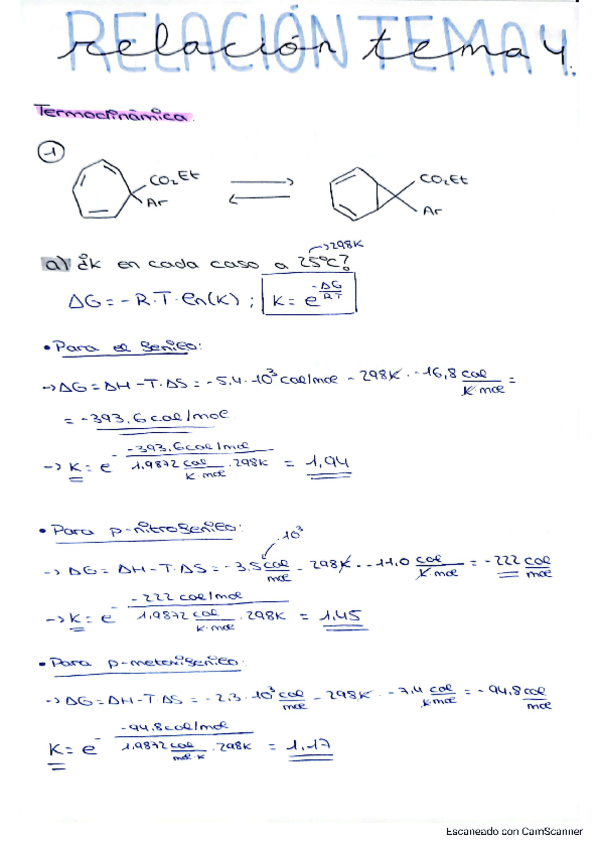 RELACIÓN TEMA 4.
relación tema 4.
Termodinámica.
1
CO2Et
Ar
CO2Et
Ar
→298K
a) ¿K en cada caso a 25ºC?
ΔG = -R·T·ln(K) ; K = e^-ΔG/RT
• Para el fenilo:
→ ΔG = ΔH - T·ΔS = -5,4·10³ cal/mol - 298K · -16,8 cal/K·mol =
= -393,6 cal/mol
→ K = e^- -393,6 cal/mol / 1,9872 cal/K·mol · 298K = 1,94
• Para p-nitrofenilo:
·10³
→ ΔG = ΔH - T·ΔS = -3,5 cal/mol - 298K · -11,0 cal/K·mol = -222 cal/mol
→ K = e^- -222 cal/mol / 1,9872 cal/K·mol · 298K = 1,45
• Para p-metoxifenilo:
→ ΔG = ΔH - T·ΔS = -2,3·10³ cal/mol - 298K · -7,4 cal/K·mol = -94,8 cal/mol
K = e^- -94,8 cal/mol / 1,9872 cal/mol·K · 298K = 1,17
Escaneado con CamScanner